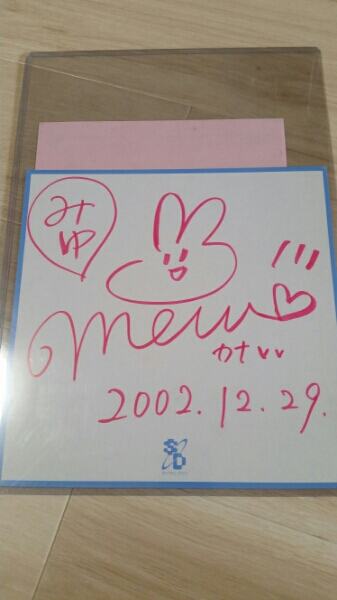 みゆ
mew
カナvv
2002.12.29.
SD